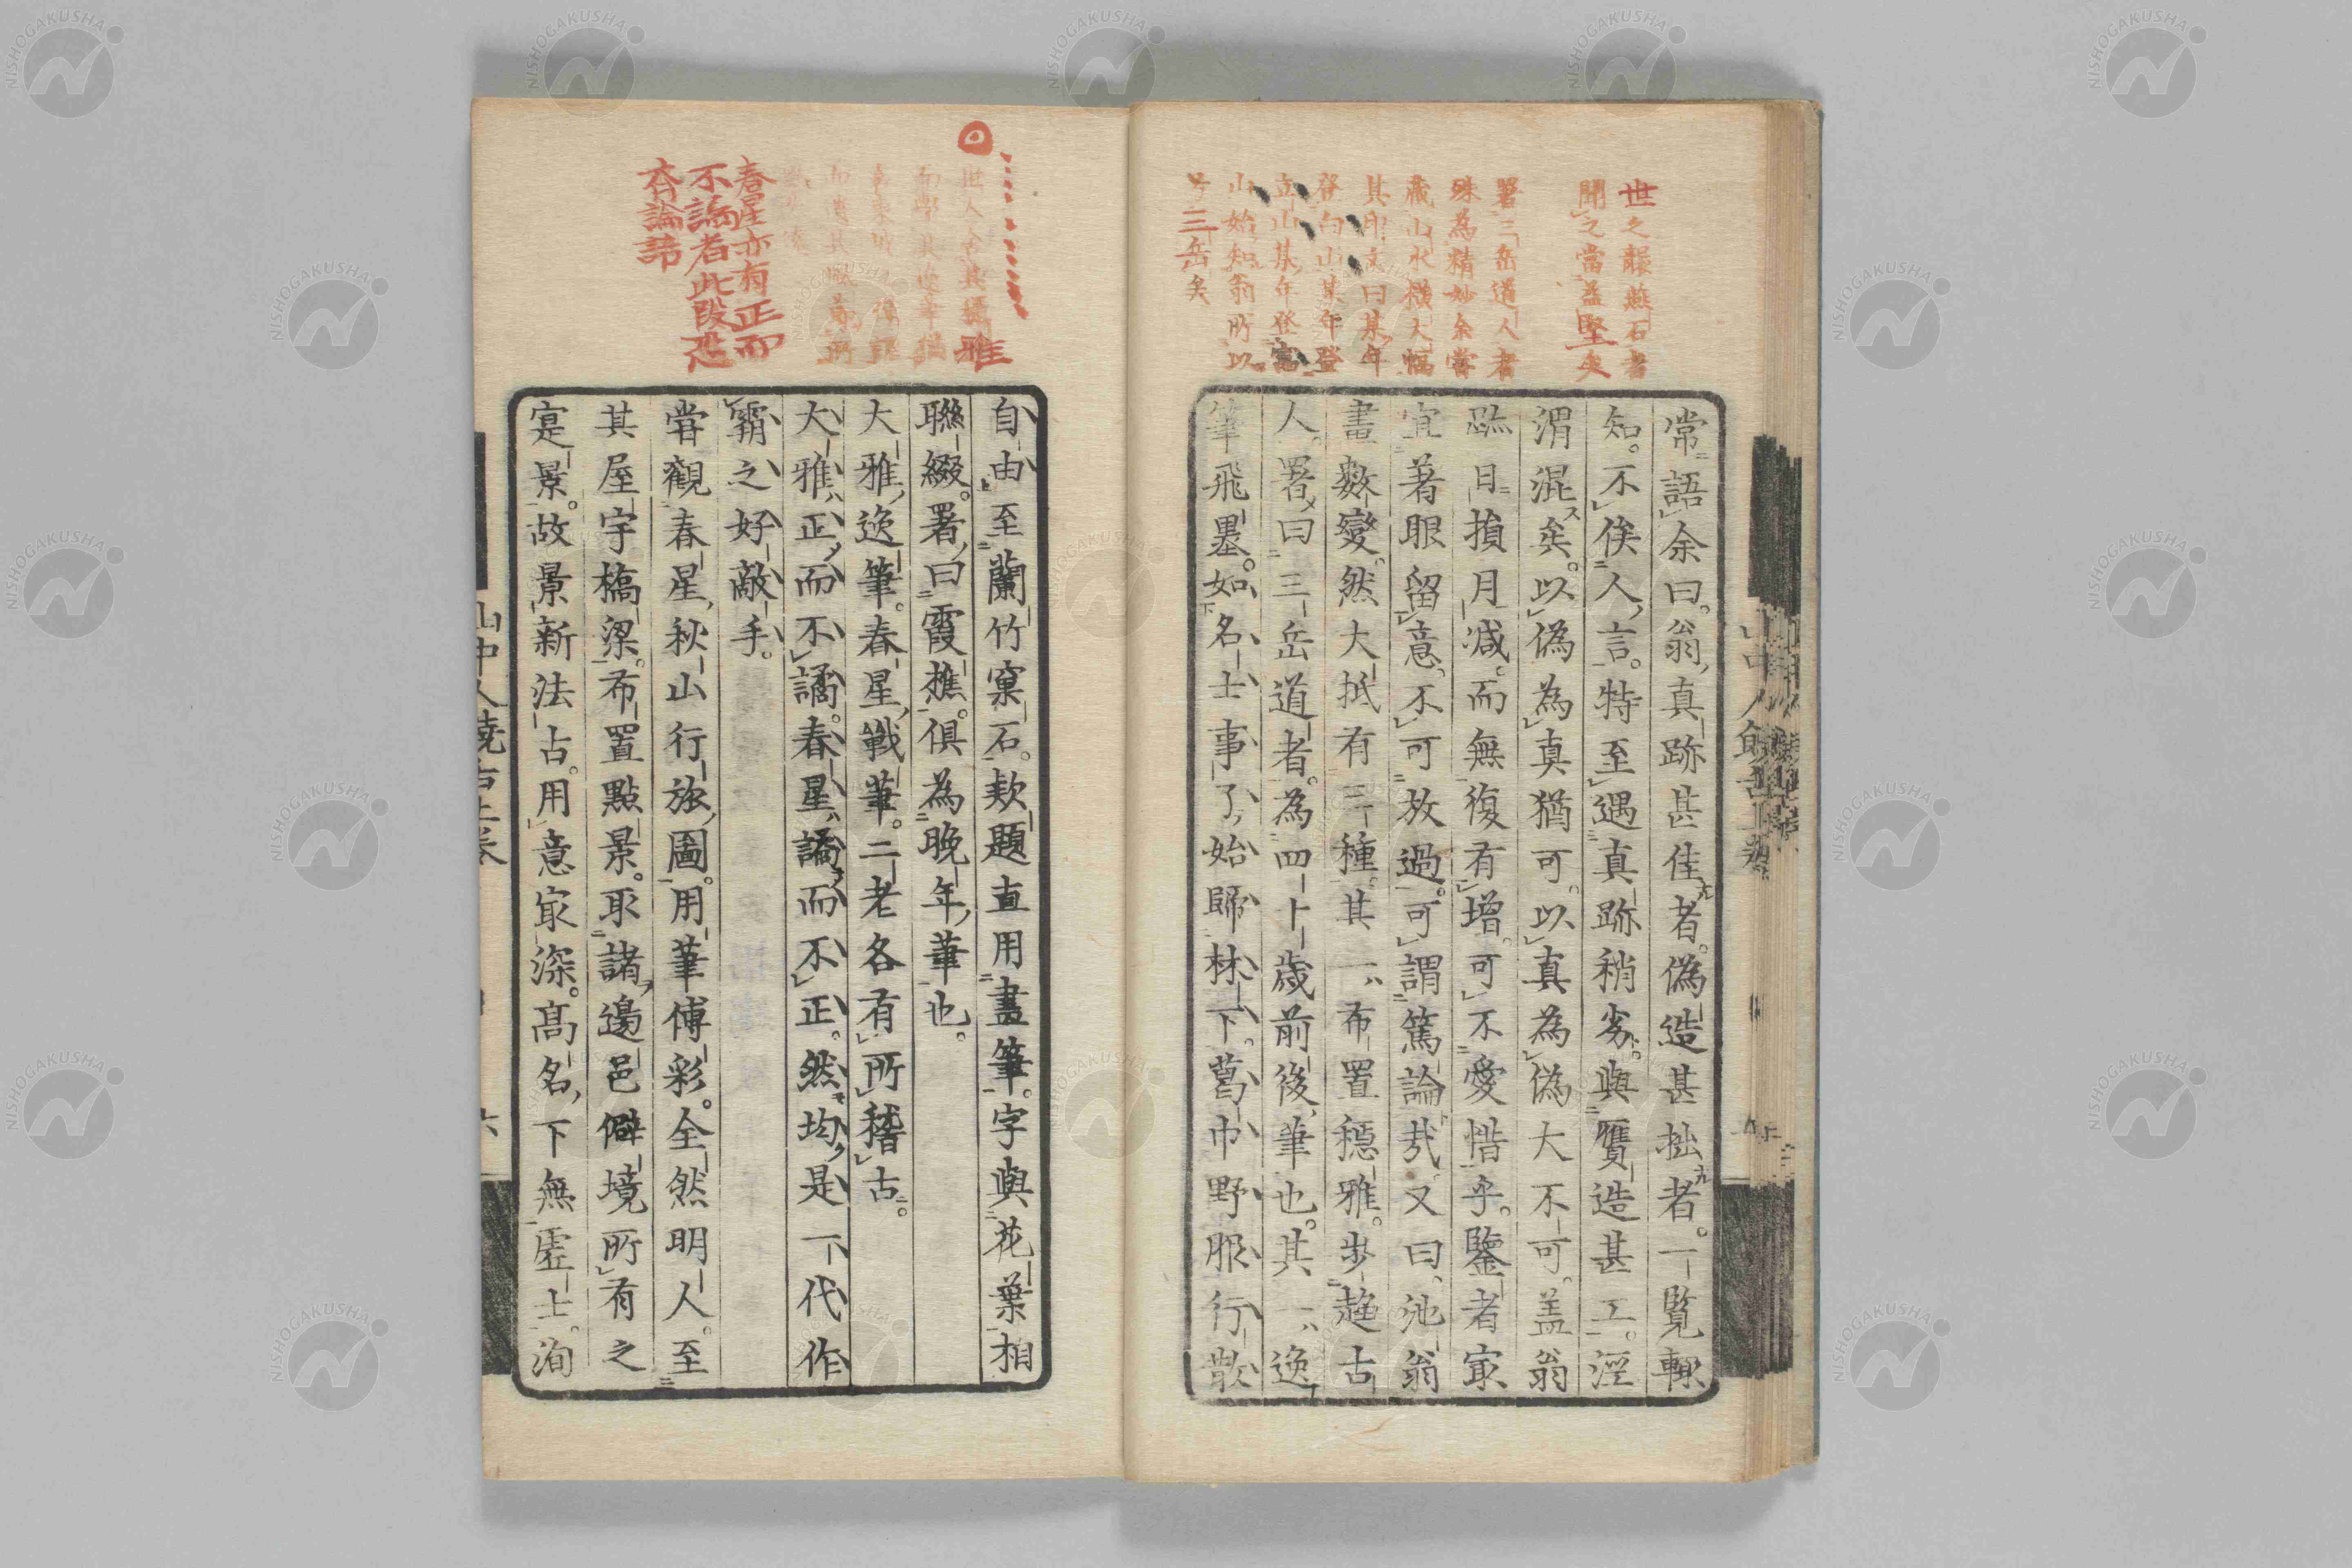 世之藏燕石者
聞之當益堅矣
署三岳道人者
殊為精妙余嘗
藏山水橫大幅
其印文曰某年
登白山某年登
立山某年登富
山始知翁所以
号三岳矣
常語余曰。翁真跡甚佳者。偽造甚拙者。一覽輙
知。不俟人言。特至遇真跡稍劣。與贋造甚工。涇
渭混矣。以偽為真猶可。以真為偽大不可。盖翁
跡日損月減。而無復有增。可不愛惜乎。鑒者冣
宜著眼留意。不可放過。可謂篤論哉。又曰。池翁
畫數變。然大抵有三種。其一、布置穩雅。步趨古
人。署曰三岳道者。為四十歲前後筆也。其一、逸
筆飛墨。如名士事了、始歸林下。葛巾野服行散
雅
春星亦有正而
不譎者此段恐
齊論諦
自由。至蘭竹窠石。欵題直用畫筆。字與花葉相
聯綴。署曰霞樵。俱為晚年筆也。
大雅逸筆。春星戰筆。二老各有所稽古。
大雅正而不譎。春星譎而不正。然均是一代作
霸之好敵手。
嘗觀春星秋山行旅圖。用筆傅彩。全然明人。至
其屋宇橋梁。布置點景。取諸邊邑僻境所有之
寔景。故景新法占。用意冣深。高名下無虛士。洵
山中人饒舌上卷
六